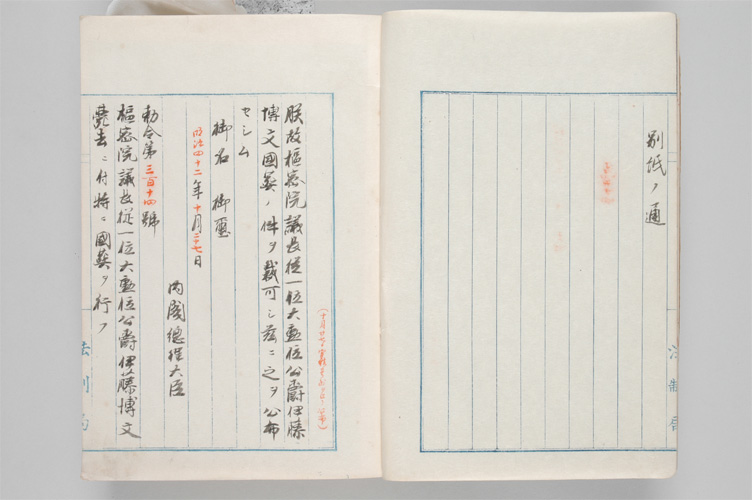 別紙ノ通
朕故樞密院議長從一位大勲位公爵伊藤
博文國葬ノ件ヲ裁可シ茲ニ之ヲ公布
セシム
御名 御璽
明治四十二年十月二十七日
内閣總理大臣
勅令第三百十四號
樞密院議長從一位大勲位公爵伊藤博文
薨去ニ付特ニ國葬ヲ行フ
法制局
法制局